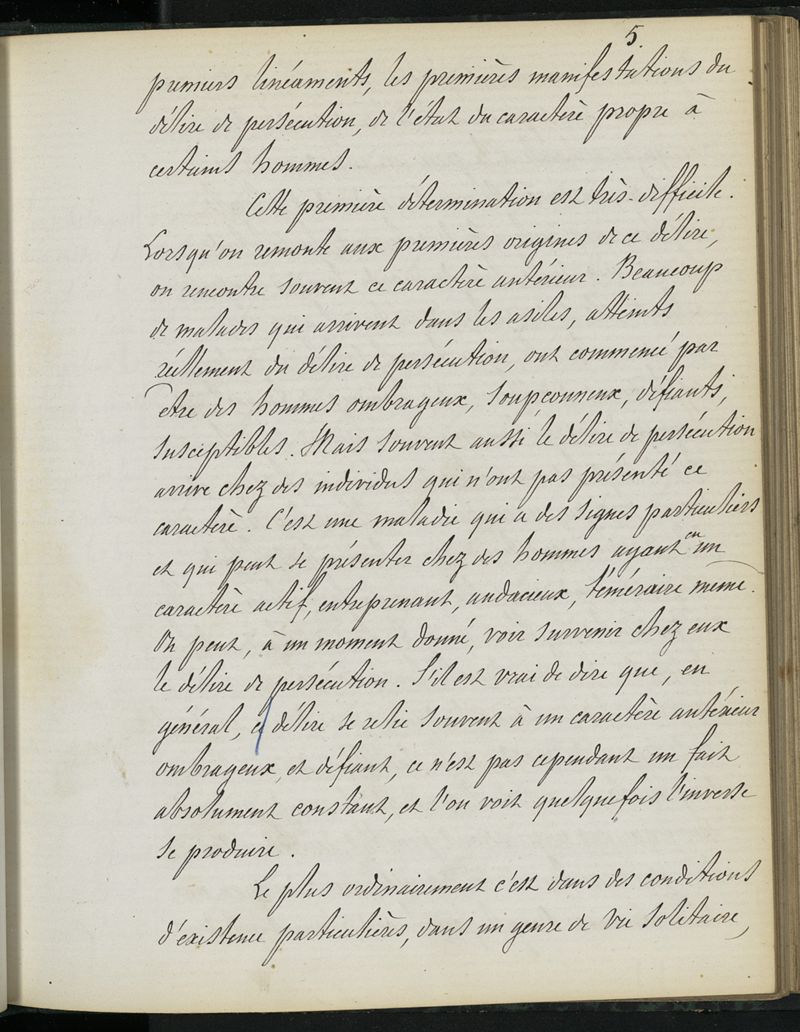 5
premiers linéaments, les premières manifestations du
délire de persécution, de l'état du caractère propre à
certains hommes.
Cette première détermination est très-difficile.
Lorsqu'on remonte aux premières origines de ce délire,
on rencontre souvent ce caractère antérieur. Beaucoup
de malades qui arrivent dans les asiles, atteints
réellement du délire de persécution, ont commencé par
être des hommes ombrageux, soupçonneux, défiants,
susceptibles. Mais souvent aussi le délire de persécution
arrive chez des individus qui n'ont pas présenté ce
caractère. C'est une maladie qui a des signes particuliers
et qui peut se présenter chez des hommes ayant eu un
caractère actif, entreprenant, audacieux, téméraire même.
On peut, à un moment donné, voir survenir chez eux
le délire de persécution. S'il est vrai de dire que, en
général, ce délire se relie souvent à un caractère antérieur
ombrageux, et défiant, ce n'est pas cependant un fait
absolument constant, et l'on voit quelquefois l'inverse
se produire.
Le plus ordinairement c'est dans des conditions
d'existence particulières, dans un genre de vie solitaire,